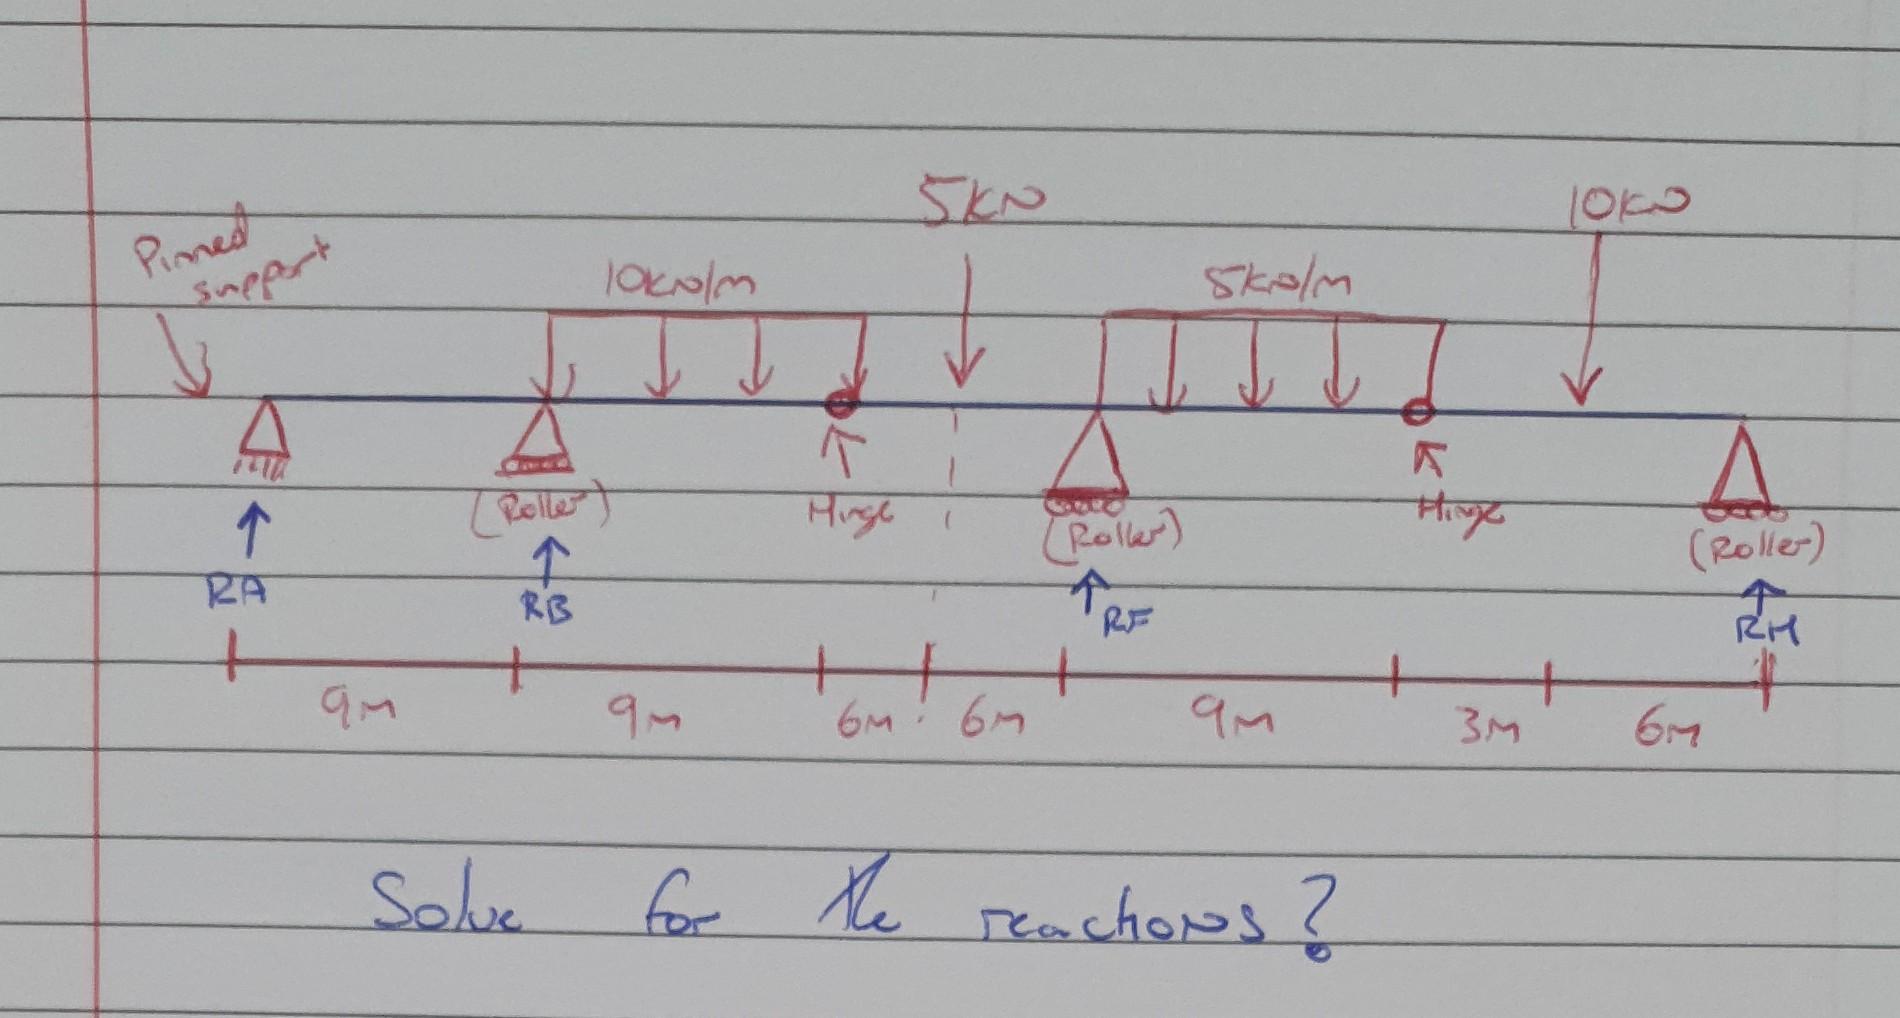 5KN
10KN
Pinned
support
10KN/m
5KN/m
(Roller)
Hinge
(Roller)
Hinge
(Roller)
RA
RB
RF
RH
9m
9m
6m
6m
9m
3m
6m
Solve for the reactions?